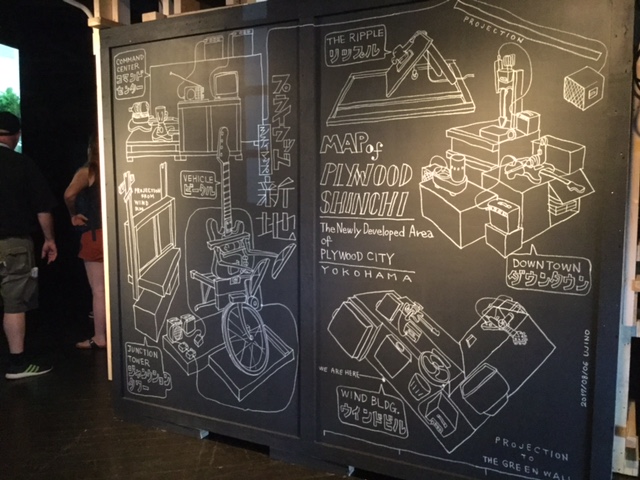 COMMAND
CENTER
コマンド
センター
プライウッド
新地
VEHICLE
ビークル
PROJECTION
FROM
WIND
JUNCTION
TOWER
ジャンクション
タワー
THE RIPPLE
リップル
PROJECTION
MAP of
PLYWOOD
SHINCHI
The Newly Developed Area
of
PLYWOOD CITY
YOKOHAMA
DOWNTOWN
ダウンタウン
WE ARE HERE
WIND BLDG.
ウインドビル
2017/08/06 UJINO
PROJECTION
TO
THE GREEN WALL